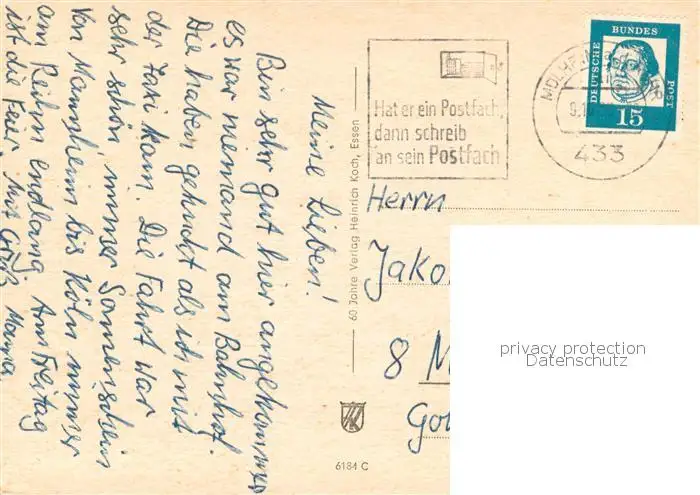 Meine Lieben!
Bin sehr gut hier angekommen
es war niemand am Bahnhof.
Die haben gekuckt als ich mit
der Taxi kam. Die Fahrt war
sehr schön immer Sonnenschein
von Mannheim bis Köln immer
am Rhein endlang Am Freitag
ist die Feier. Mit Grüß Mama
60 Jahre Verlag Heinrich Koch, Essen
6184 C
Hat er ein Postfach,
dann schreib
an sein Postfach
433
DEUTSCHE BUNDES POST
15
Herrn
Jako
8 M
privacy protection
Datenschutz